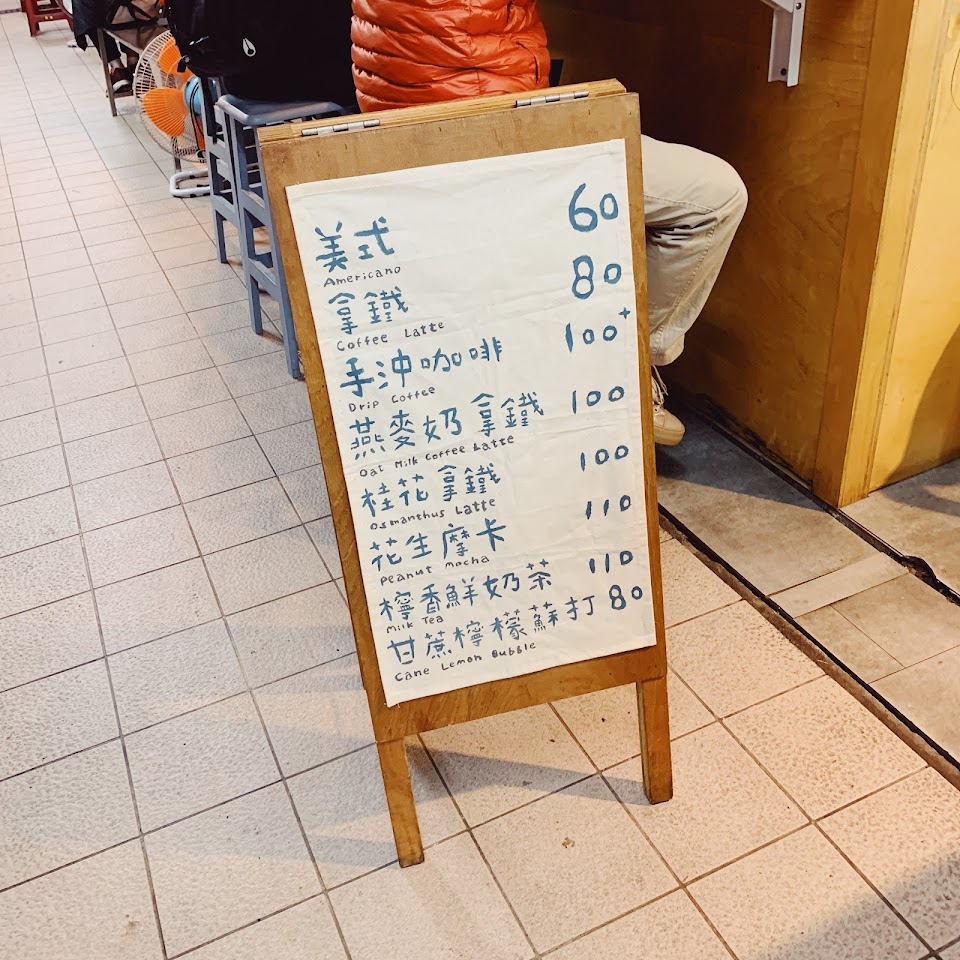 美式 60
Americano
拿鐵 80
Coffee Latte
手沖咖啡 100+
Drip Coffee
燕麥奶拿鐵 100
Oat Milk Coffee Latte
桂花拿鐵 100
Osmanthus Latte
花生摩卡 110
Peanut Mocha
檸香鮮奶茶 110
Milk Tea
甘蔗檸檬蘇打 80
Cane Lemon Bubble